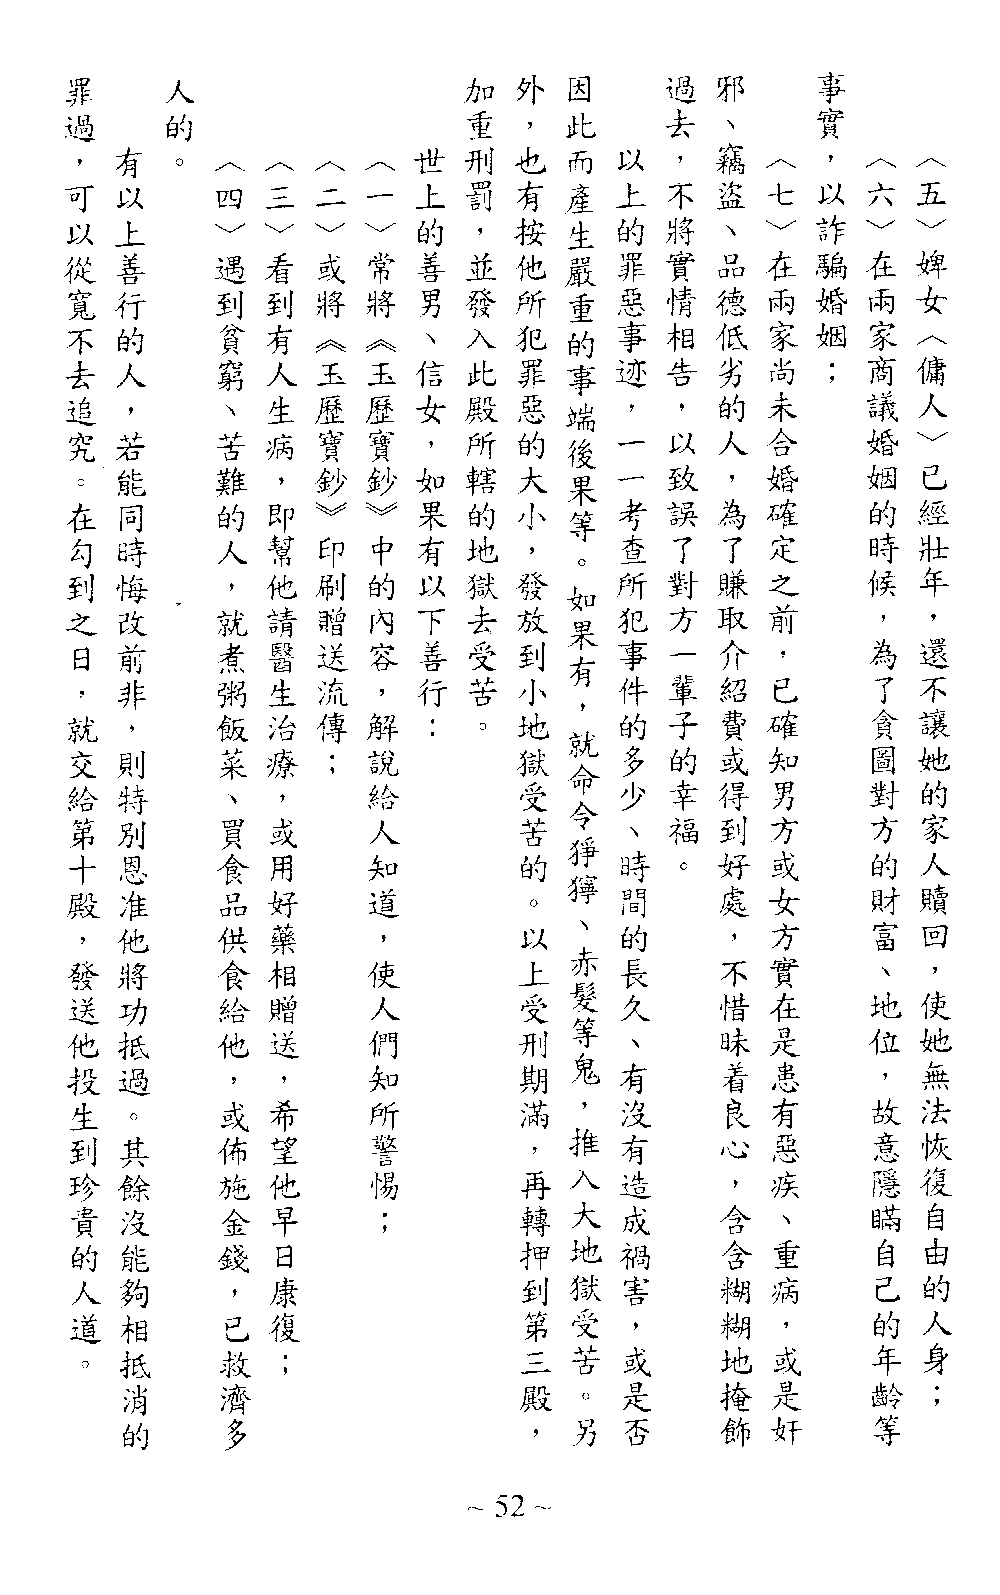 〈五〉婢女〈傭人〉已經壯年，還不讓她的家人贖回，使她無法恢復自由的人身；
〈六〉在兩家商議婚姻的時候，為了貪圖對方的財富、地位，故意隱瞞自己的年齡等
事實，以詐騙婚姻；
〈七〉在兩家尚未合婚確定之前，已確知男方或女方實在是患有惡疾、重病，或是奸
邪、竊盜、品德低劣的人，為了賺取介紹費或得到好處，不惜昧着良心，含含糊糊地掩飾
過去，不將實情相告，以致誤了對方一輩子的幸福。
以上的罪惡事迹，一一考查所犯事件的多少、時間的長久、有沒有造成禍害，或是否
因此而產生嚴重的事端後果等。如果有，就命令猙獰、赤髮等鬼，推入大地獄受苦。另
外，也有按他所犯罪惡的大小，發放到小地獄受苦的。以上受刑期滿，再轉押到第三殿，
加重刑罰，並發入此殿所轄的地獄去受苦。
世上的善男、信女，如果有以下善行：
〈一〉常將《玉歷寶鈔》中的內容，解說給人知道，使人們知所警惕；
〈二〉或將《玉歷寶鈔》印刷贈送流傳；
〈三〉看到有人生病，即幫他請醫生治療，或用好藥相贈送，希望他早日康復；
〈四〉遇到貧窮、苦難的人，就煮粥飯菜、買食品供食給他，或佈施金錢，已救濟多
人的。
有以上善行的人，若能同時悔改前非，則特別恩准他將功抵過。其餘沒能夠相抵消的
罪過，可以從寬不去追究。在勾到之日，就交給第十殿，發送他投生到珍貴的人道。
~ 52 ~